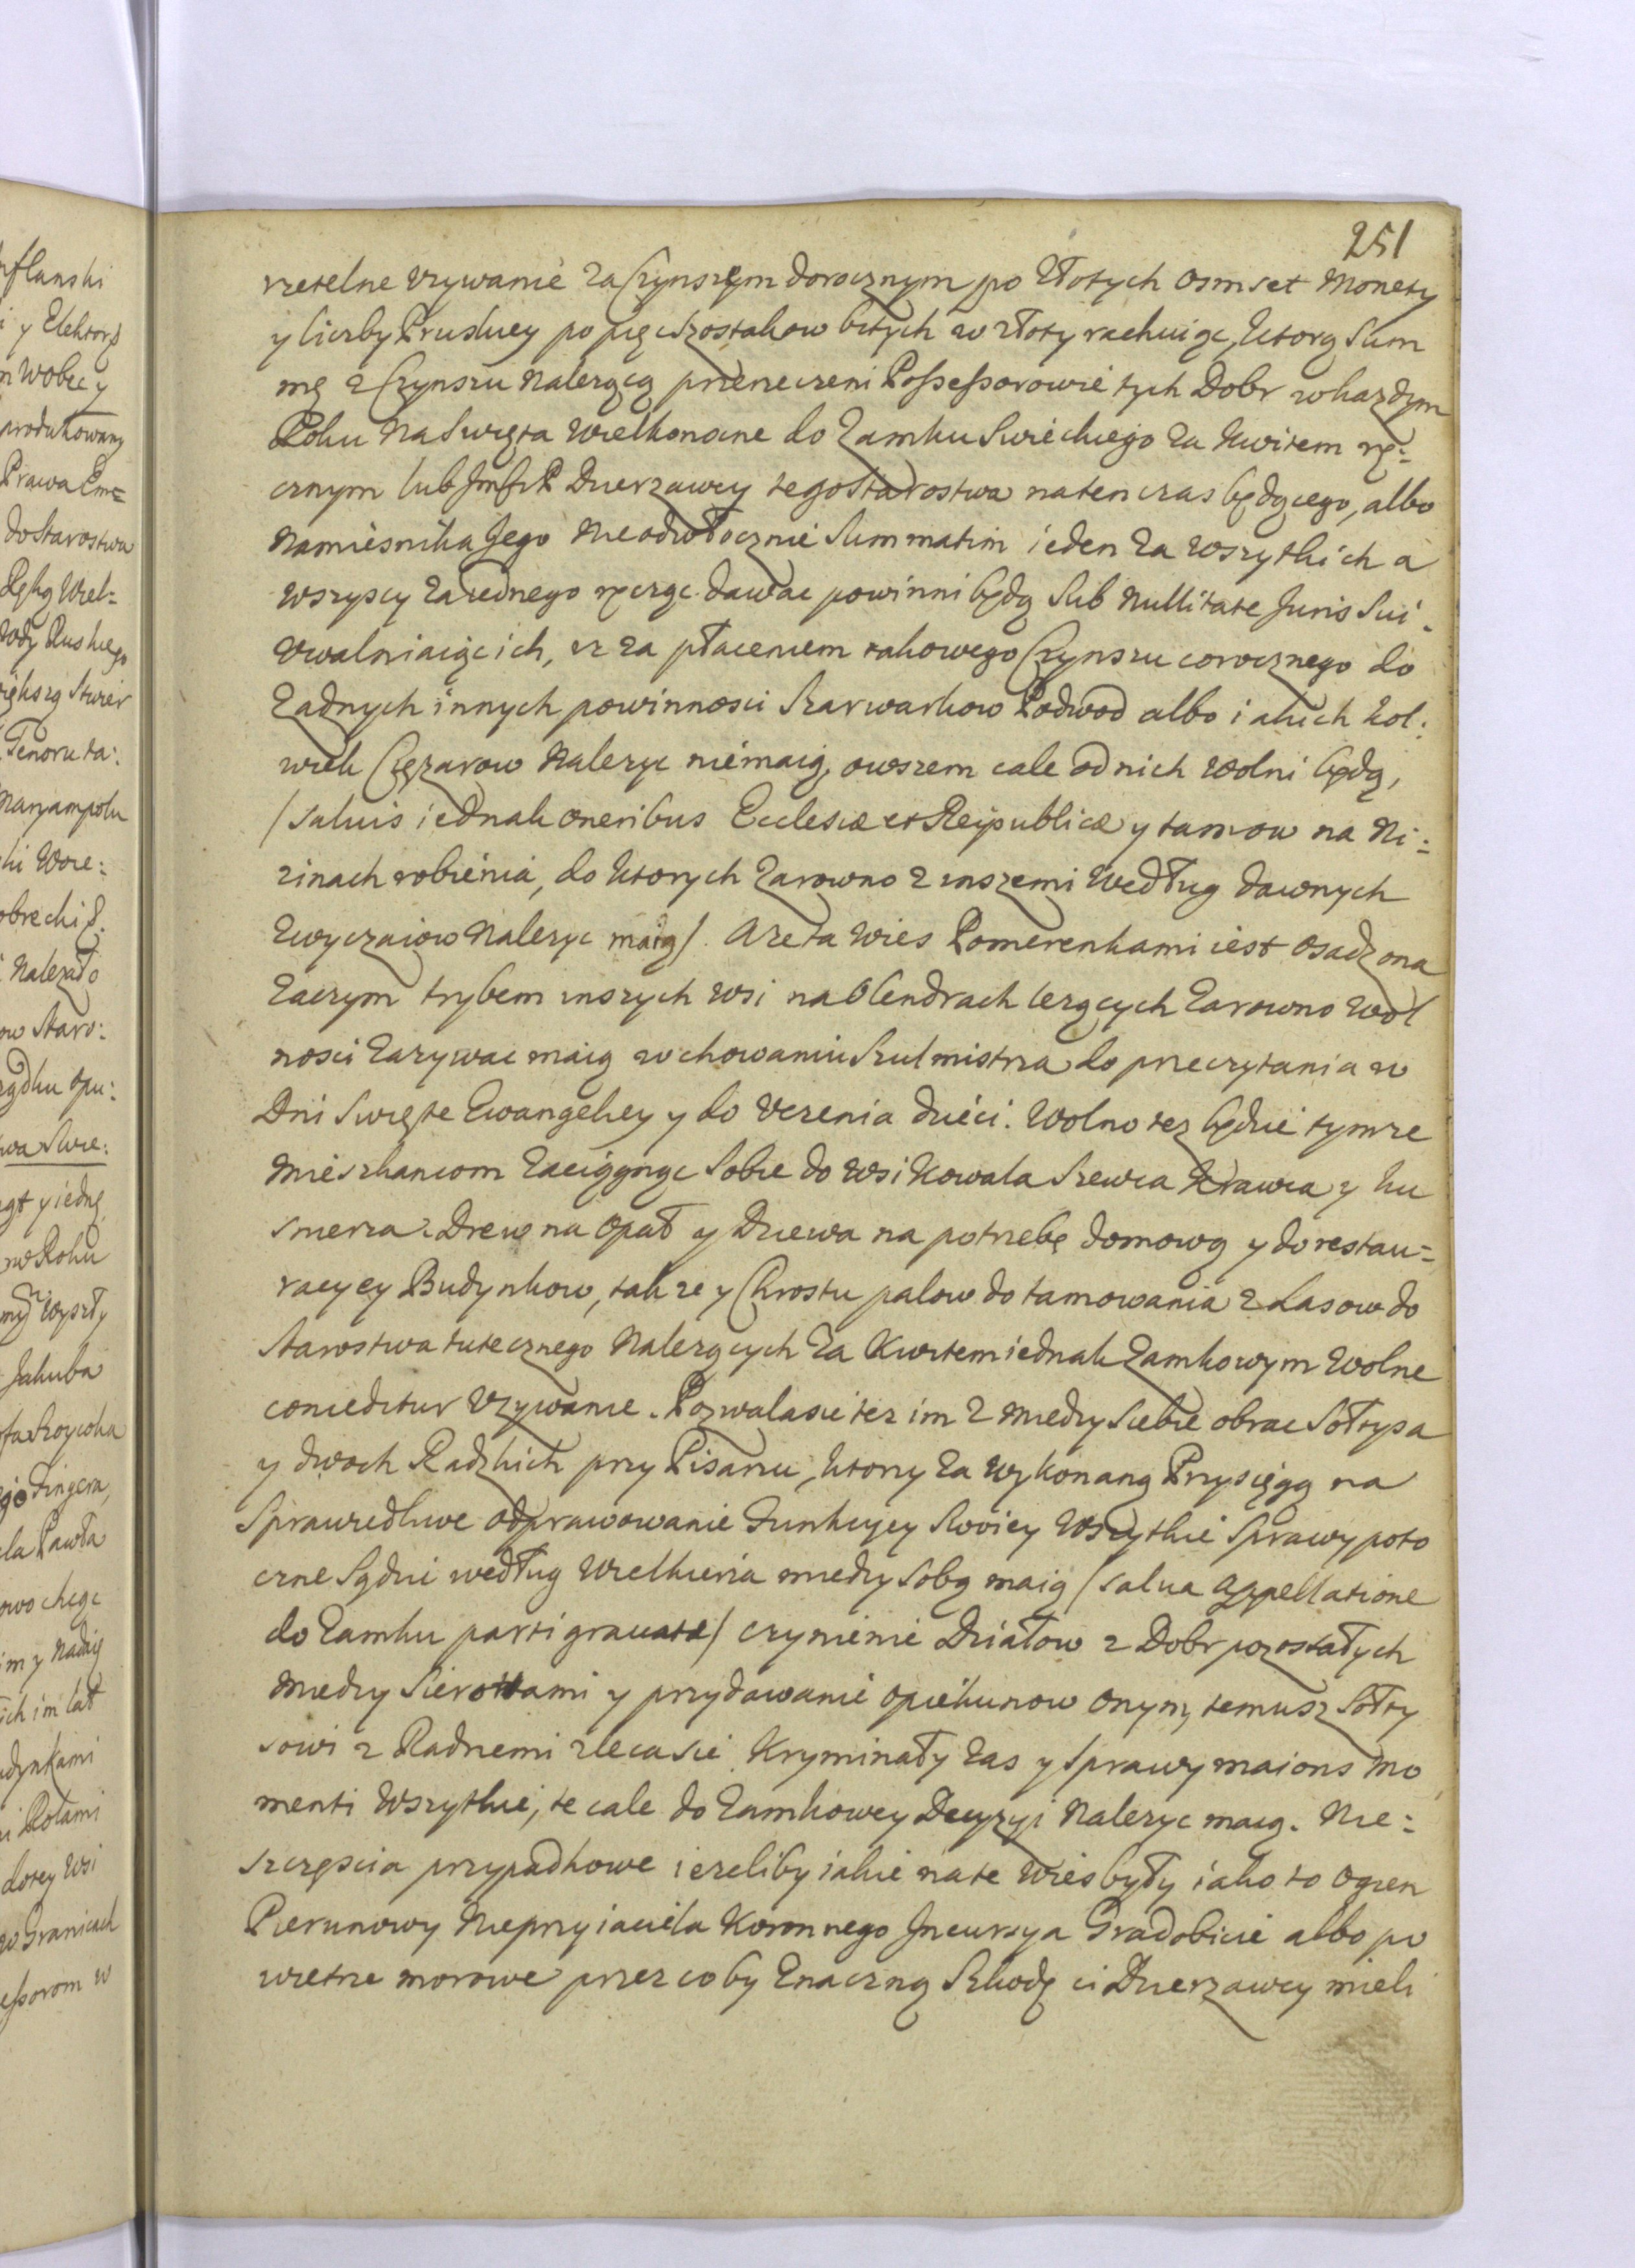 251
rzetelne vzywanie za Czynszem dorocznym po Złotych osmset Monety
y liczby Pruskiey po pięc szostakow bitych w złoty rachuiąc, ktorą Sum
mę z Czynszu Nalezącą przerzeczeni Possessorowie tych Dobr w kazdym
Roku na Swięta Wielkonocne do Zamku Swieckiego za Kwitem rę=
cznym lub Jmści P Dzierzawcy tego Starostwa natenczas będącego, albo
Namiesnika Jego Nieodwłocznie Summatim ieden za wszytkich a
wszyscy za iednego ręcząc dawac powinni będą Sub Nullitate Juris Sui.
Vwalniaiąc ich, iz za płaceniem takowego Czynszu corocznego do
Zadnych innych powinnosci Szarwarkow Podwod albo iakich kol:
wiek Cięzarow Nalezyc niemaią, owszem cale od nich Wolni będą,
/Saluis iednak oneribus Ecclesiæ et Reipublicæ y tamow na Ni:
zinach robienia, do ktorych Zarowno z inszemi Według dawnych
Zwyczaiow Nalezyc maią/. A ze ta Wies Pomerenkami iest osadzona
Zaczym trybem inszych Wsi na Olendrach lezących Zarowno Wol
nosci Zazywac maią w chowaniu Szulmistrza do przeczytania w
Dni Swięte Ewangeliey y do Vczenia dzieci. Wolno tez będzie tymze
Mieszkancom Zaciągnąc Sobie do Wsi Kowala Szewca Krawca y ku
snierza. Drew na Opał y Drzewa na potrzebę domową y do restau=
racyey Budynkow, takze y Chrostu palow do tamowania z Lasow do
Starostwa tutecznego Nalezących Za Kwitem iednak Zamkowym Wolne
conceditur Vzywanie. Pozwala sie tez im z miedzy Siebie obrac Sołtysa
y dwoch Radzkich przy Pisarzu, ktory Za Wykonaną Przysięgą na
Sprawiedliwe odprawowanie Funkcyey Swoiey Wszytkie Sprawy poto
czne Sądzic według Wielkierza miedzy Sobą maią /salua Appellatione
do Zamku parti grauatæ/ czynienie Działow z Dobr pozostałych
Miedzy Sierotami y przydawanie Opiekunow Onym, temusz Sołty
sowi z Radnemi zleca sie. Kryminały Zas y Sprawy maioris Mo
menti Wszytkie, te cale do Zamkowey Decyzyi Nalezyc maią. Nie:
szczęscia przypadkowe iezeliby iakie na te Wies były iako to Ogien
Pierunowy Nieprzyiaciela Koronnego Jncursya Gradobicie albo po
wietrze morowe przez coby Znaczną Szkodę ci Dzierzawcy mieli